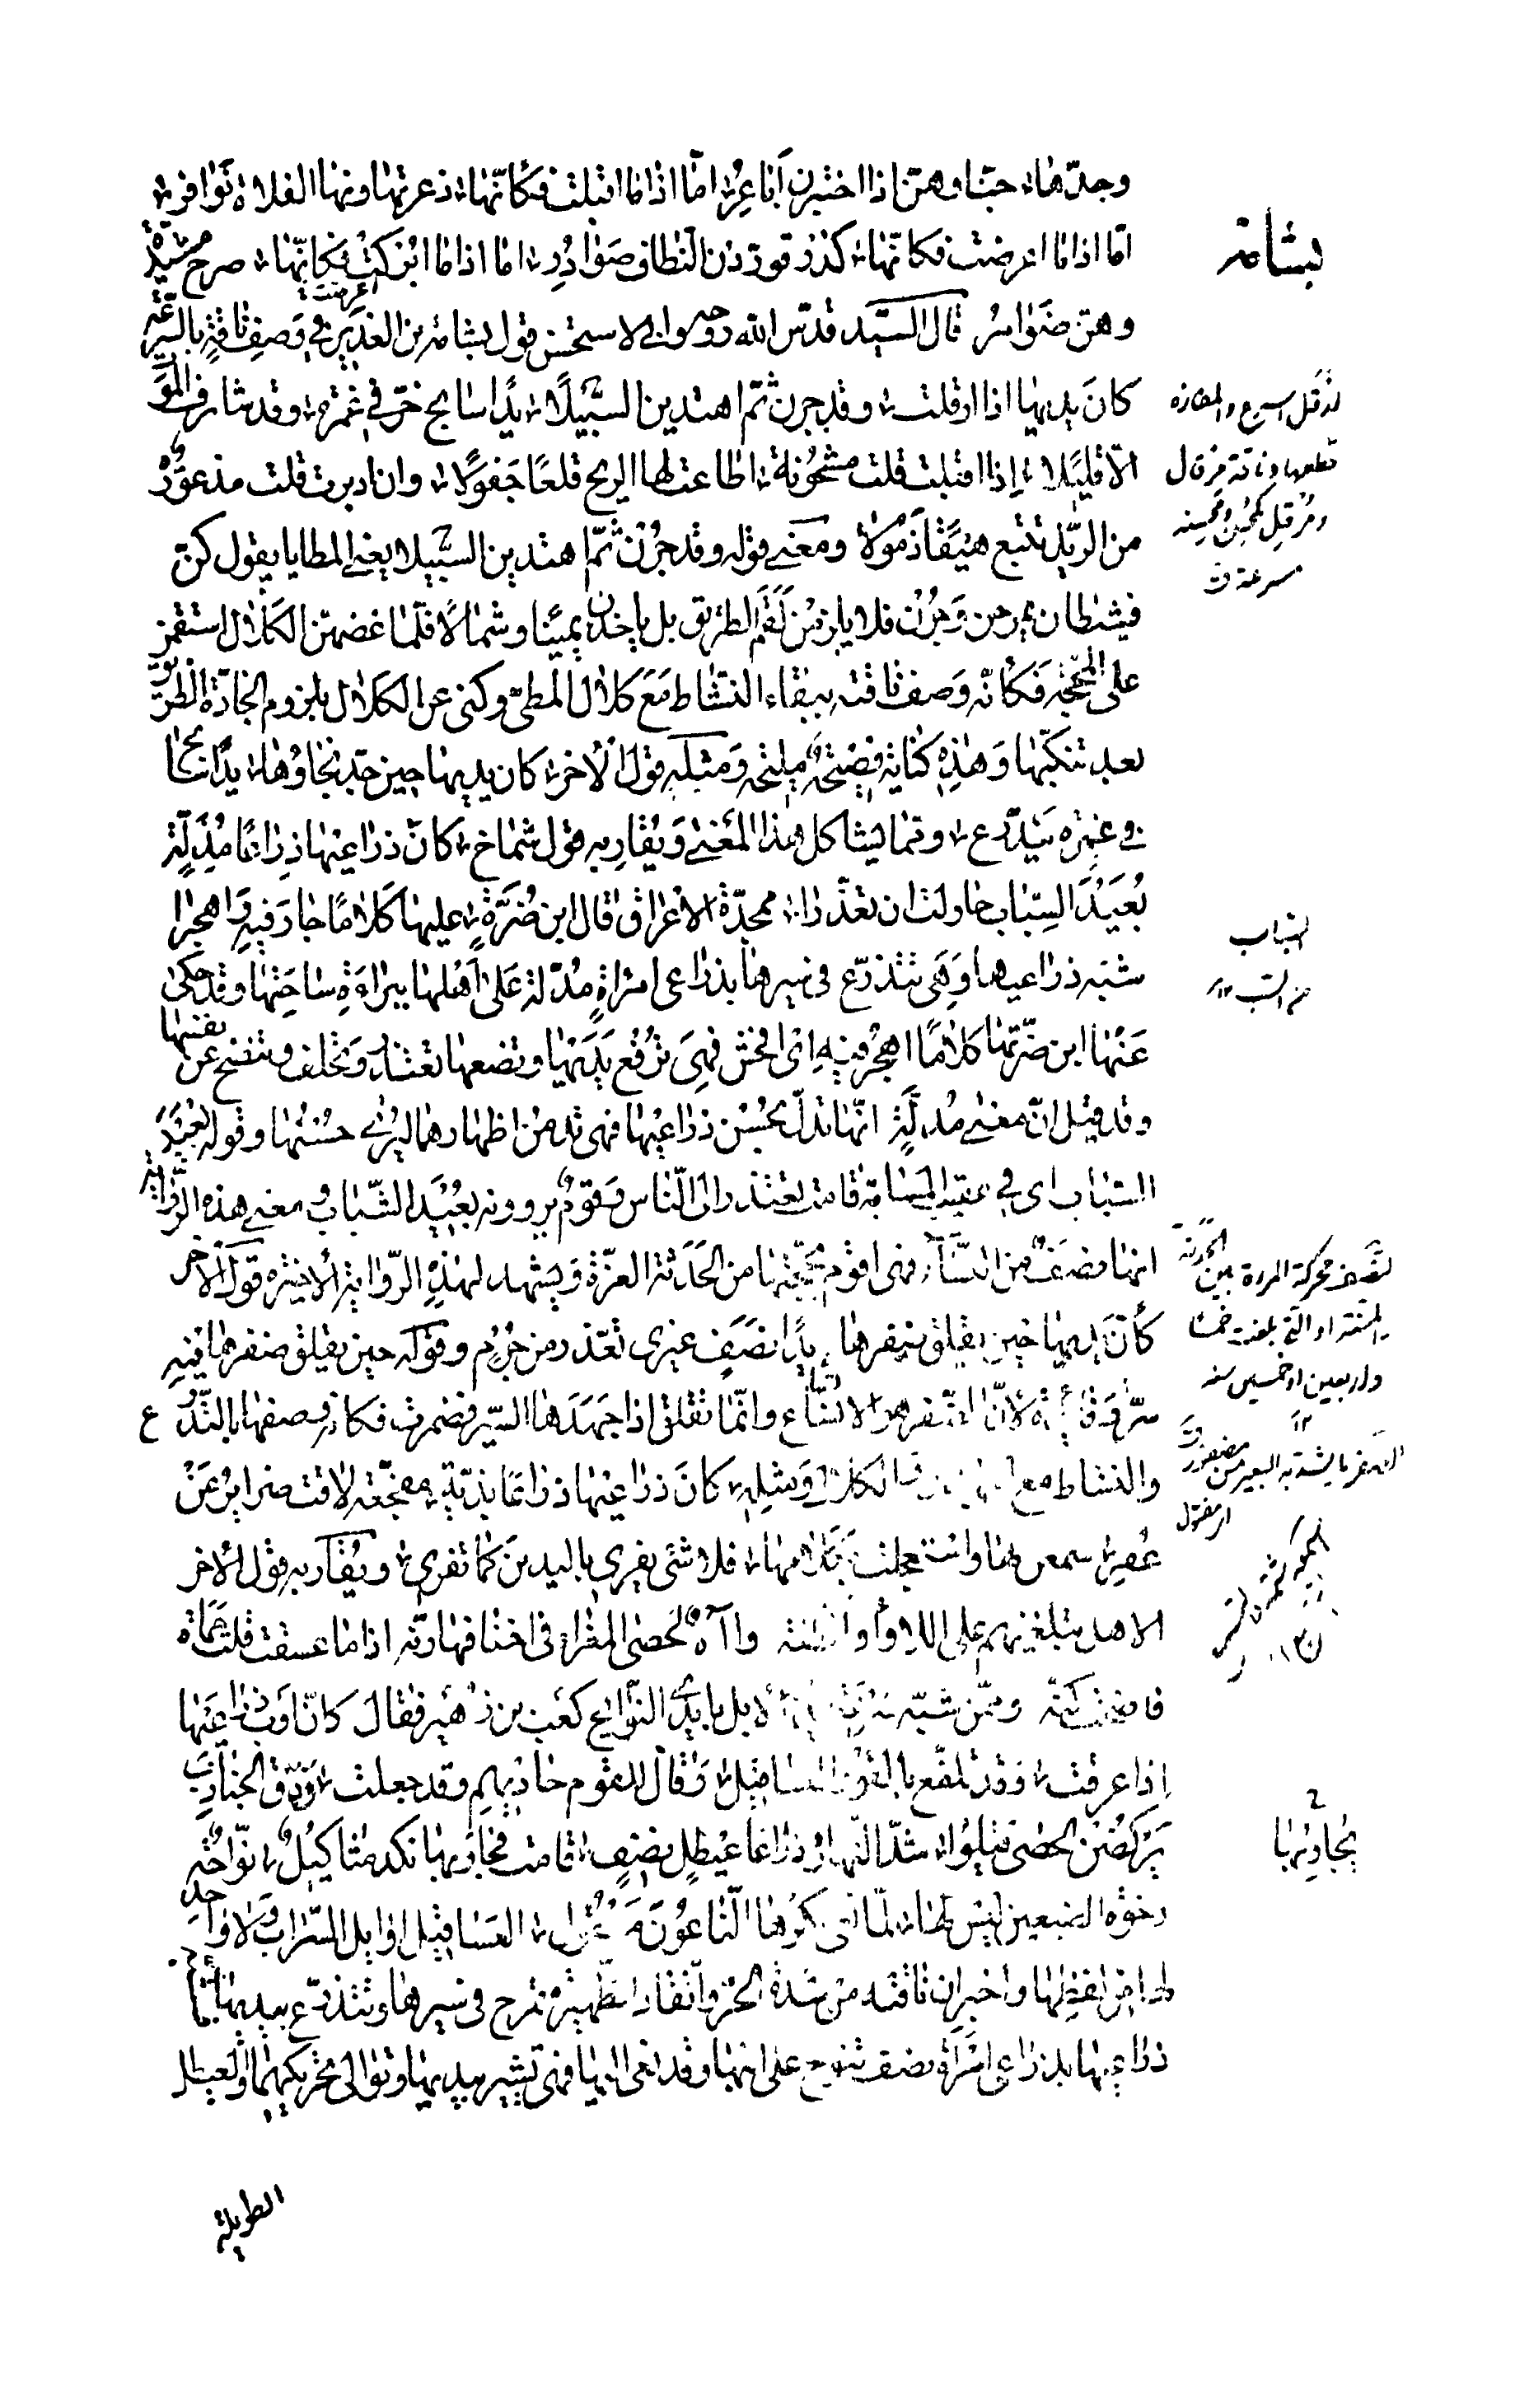 وجدّها، حبّا وهنّ اذا اختبرن اباعرُ امّا اذا ما اقبلت فكانّها، ذعرتها ونها الفلاة نوافر
امّا اذا ما اعرضت فكانّها، كدر توردن النطاف صوادر، اما اذا ما ابركت فكانّها، صرح مشيّدة
عرضت
وهنّ ضوامرُ قال السيّد قدّس الله روحه واني لاستحسن قول بشامة بن الغدير في وصف ناقةٍ بالسّرعة
كانَ يديها اذا ارقلت، وقد جرن ثمّ اهتدين السّبيلا، يدا سابح خرّ في غمرة، وقد شارف الموت
الّا قليلا، اذا اقبلت قلت مشحُونة، اطاعت لها الريح قلعًا جفولا، وان ادبرت قلت مذعورة
من الربد تتبع هيقًا ذمولا ومعنى قوله وقد جُرن ثمّ اهتدين السّبيلا يعني المطايا يقول كنّ
نشطان يمرحن وَجُرن فلا يلزمن لَقَم الطريق بل ياخذن يمينًا وشمالًا فلمّا غضهنّ الكلال استقمن
على المحجّة فكانّه وَصف ناقته ببقاء النّشاط مَعَ كلال المطيّ وكنى عن الكلال بلزوم الجادّة الطريق
بعد تنكّبها وَهٰذِهِ كناية فصيحة مليحة وَمثله قول الآخر، كان يديها حين جدّ نجاؤها، يدا سابح
في غمره يتذرّع، وممّا يشاكل هذا المعنى وَيُقاربه قول شمّاخ، كانّ ذراعيها ذراعا مُدِلّةٍ
بُعَيْدَ السِّباب حاولت ان تعذّرا، ممجّدة الاعراق قال ابن ضَرّةٍ، عليها كلامًا جارَ فيه وَاهجرا
شبّه ذراعيها وَهي تتذرّع في سيرها بذراعي امراةٍ مُدّلة على اهلها ببراءة ساحتها وقد حكى
عَنْها ابن ضرّتها كلامًا اهجر فيه اي افحش فهي ترفع يديها وتضعها تعتذر وتحلف وتنضح عن نفسها
وقد قيل انّ معنى مُدِلّة انّها تدلّ بحُسْن ذراعيها فهي تدمن اظهارهما ليُرى حسنهُما وقوله بُعَيْدَ
السّباب اي في عقيب المسابّة قامت تعتذر الى النّاس وَقومٌ يروونه بُعَيْدَ الشّباب ومعنى هذه الرّواية
انها نصَفٌ من النّسآء فهي اقوم بحجّتها من الحَدَثة الغرّة وَيشهد لهٰذِهِ الرّواية الاخيرة قول الآخر
كأنّ يديها حين يقلق ضفرها، يدا نصَفٍ غيرى تعذّر من جُرم وقوله حين يقلق ضفرها فيه
لانّ الضفر هو الانساع وانّما تقلق اذا جهدها السّير فضمرت فكانه وصفها بالتّذرّع
والنشاط مع الكلال وَمثله، كانّ ذراعيها ذراعا بذيّة، مفجّعة لاقت ضرائر عن
عُفر، سمعن لها واستعجلت بكلامها، فلا شئ يفري باليدين كما تفري، ويُقاربه قول الآخر
الا هل تبلغنيهم على اللاواء والظنه وآآه لحصى المعزاء في اخفافها رنّه اذا ما عسفت قلت حماة
فاضحت كنّه وممّن شبّه الابل بايدي النّوايح كعب بن زُهير فقال كانّ اوب ذراعيها
اذا عرقت، وقد تلفّع بالقور العساقيل، وَقال للقوم حاديهم وقد جعلت، ورق الجنادب
يركُضن الحصى قيلوا، شدّ النّهار ذراعا عيطلٍ نصَفٍ، قامت فجاوبها نكد مثاكيلُ، نوّاحة
رخوة الضبعين ليس لها، لمّا نعى بكرها النّاعون مَعْقُول، العساقيل اوايل السّراب ولا واحد
لها من لفظها واخبر ان ناقته من شدّة الحرّ واتقاد الظّهيرة تمرح في سيرها وتتذرّع بيديها
ذراعيها بذراعي امراة نصف تنوح على ابنها وقد نعى اليها فهي تشير بيديها وتوالي تحريكهما والعيطل
الطويلة
بشامة
ارقل اسرع والمفازة
قطعها وناقة مرقال
ومرقل كمحسن ومحسنه
مسرعة ق
السّباب
من السّب ١٢
النَّصَف محركة المراة بين الحدثة
والمسنة او التي بلغت خمسا
واربعين او خمسين سنه
١٢
الضفر ما يشد به البعير من مضفور
او مفتول
يجاوبها